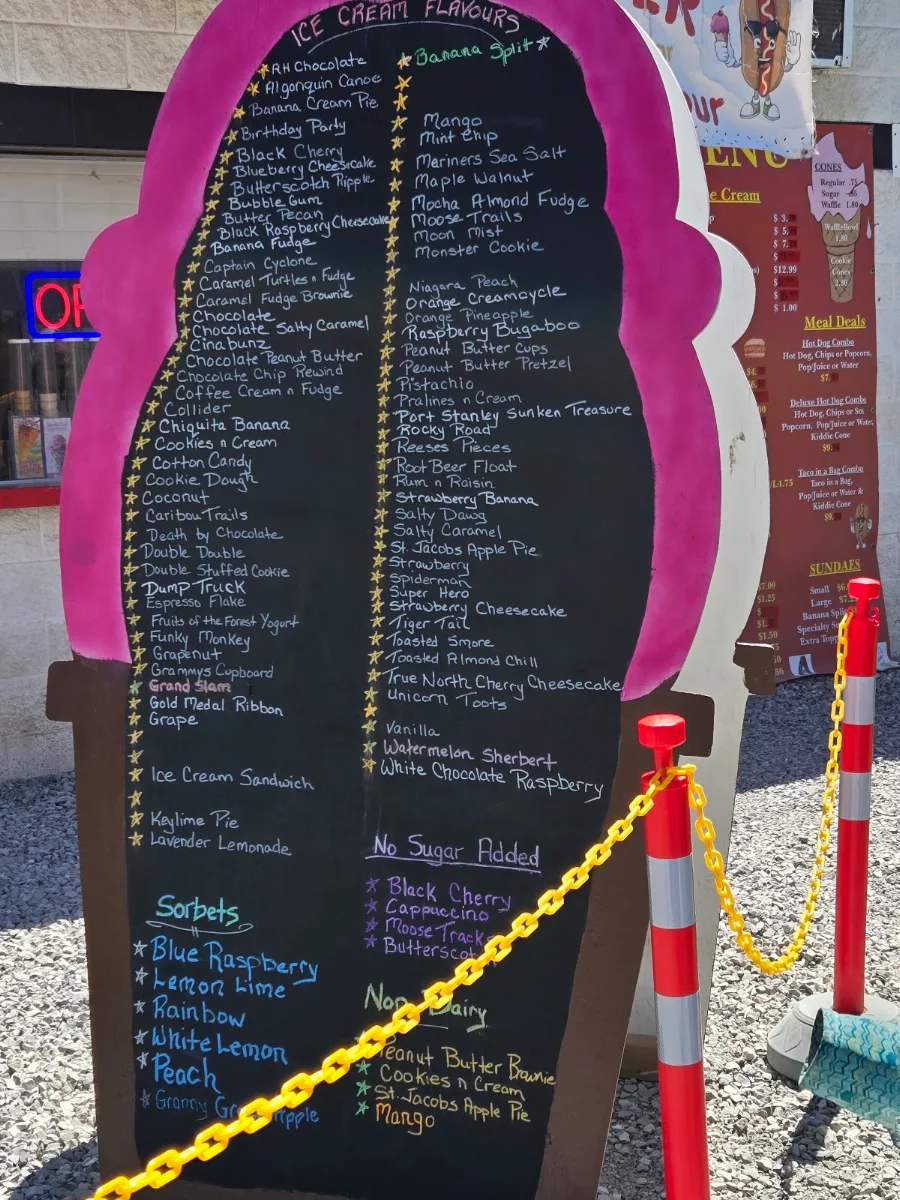 ICE CREAM FLAVOURS
RH Chocolate
Algonquin Canoe
Banana Cream Pie
Birthday Party
Black Cherry
Blueberry Cheesecake
Butterscotch Ripple
Bubble Gum
Butter Pecan
Black Raspberry Cheesecake
Banana Fudge
Captain Cyclone
Caramel Turtles n Fudge
Caramel Fudge Brownie
Chocolate
Chocolate Salty Caramel
Cinabunz
Chocolate Peanut Butter
Chocolate Chip Rewind
Coffee Cream n Fudge
Collider
Chiquita Banana
Cookies n Cream
Cotton Candy
Cookie Dough
Coconut
Caribou Trails
Death by Chocolate
Double Double
Double Stuffed Cookie
Dump Truck
Espresso Flake
Fruits of the Forest Yogurt
Funky Monkey
Grapenut
Grammys Cupboard
Grand Slam
Gold Medal Ribbon
Grape
Ice Cream Sandwich
Keylime Pie
Lavender Lemonade
Sorbets
Blue Raspberry
Lemon Lime
Rainbow
White Lemon
Peach
Granny
Banana Split
Mango
Mint Chip
Mariners Sea Salt
Maple Walnut
Mocha Almond Fudge
Moose Trails
Moon Mist
Monster Cookie
Niagara Peach
Orange Creamcycle
Orange Pineapple
Raspberry Bugaboo
Peanut Butter Cups
Peanut Butter Pretzel
Pistachio
Pralines n Cream
Port Stanley Sunken Treasure
Rocky Road
Reeses Pieces
Root Beer Float
Rum n Raisin
Strawberry Banana
Salty Dawg
Salty Caramel
St. Jacobs Apple Pie
Strawberry
Spiderman
Super Hero
Strawberry Cheesecake
Tiger Tail
Toasted Smore
Toasted Almond Chill
True North Cherry Cheesecake
Unicorn Toots
Vanilla
Watermelon Sherbert
White Chocolate Raspberry
No Sugar Added
Black Cherry
Cappuccino
Moose Track
Buttersco
Non Dairy
Peanut Butter Brownie
Cookies n Cream
St. Jacobs Apple Pie
Mango
OP
ENU
e Cream
$ 3.
$ 5.
$ 7.
$12.99
$ 1.00
CONES
Regular .75
Sugar
Waffle 1.80
Wafflebowl
1.80
Cookie
Cones
2.80
Meal Deals
Hot Dog Combo
Hot Dog, Chips or Popcorn,
Pop/Juice or Water
$7.
Deluxe Hot Dog Combo
Hot Dog, Chips or Sm
Popcorn, Pop/Juice or Water,
Kiddie Cone
$9.
Taco in a Bag Combo
Taco in a Bag,
Pop/Juice or Water &
Kiddie Cone
$9.
SUNDAES
Small $6.
Large $7.
Banana Split
Specialty
Extra Topp